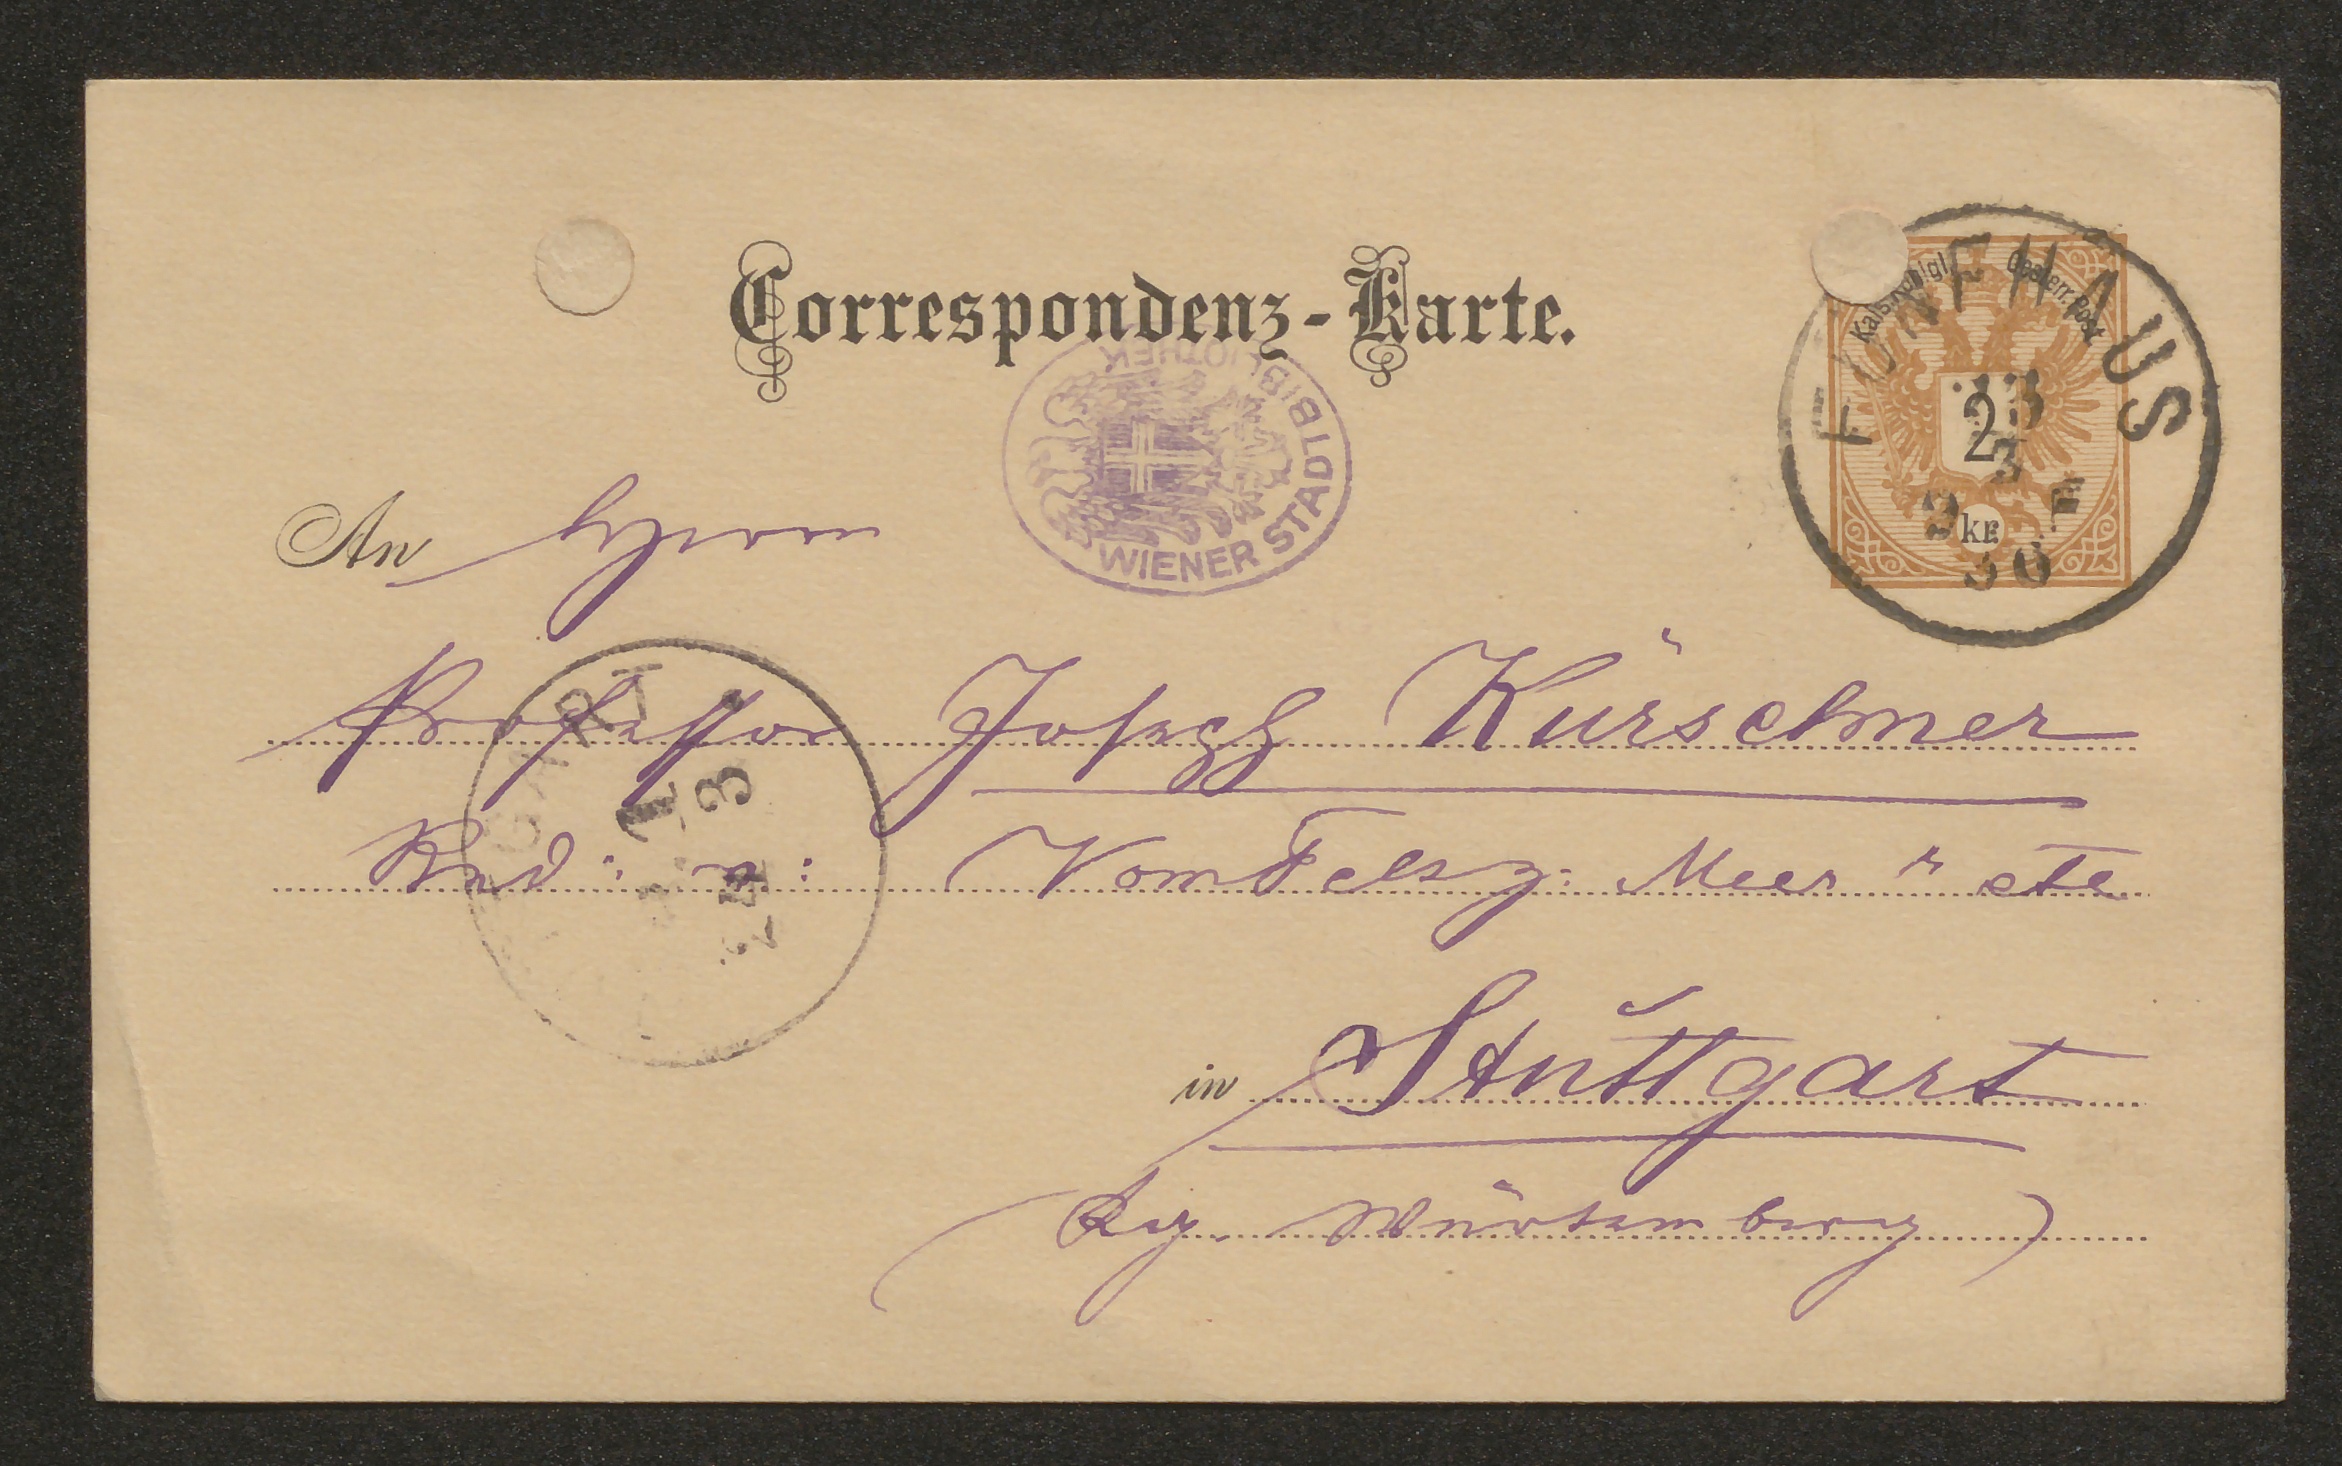 Correspondenz-Karte.
Kais. Königl. Oesterr. Post
2
kr.
FÜNFHAUS
23
3
WIENER STADTBIBLIOTHEK
An Herrn
Professor Joseph Kürschner
Red: v: Vom Fels z: Meer" etc
in Stuttgart
(Kg. Würtemberg)